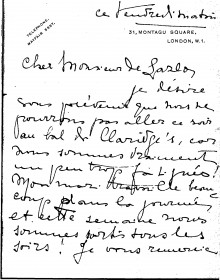 ce Vendredi matin
TELEPHONE
MAYFAIR
31, MONTAGU SQUARE,
LONDON, W.1.
Cher Monsieur de
je désire
vous prévenir que nous ne
pourrons pas aller ce soir
au bal de Claridge's, car
nous sommes vraiment
un peu trop fatigués!
Mon mari travaille beau
coup dans la journée
et cette semaine nous
sommes sortis tous les
soirs! Je vous remercie